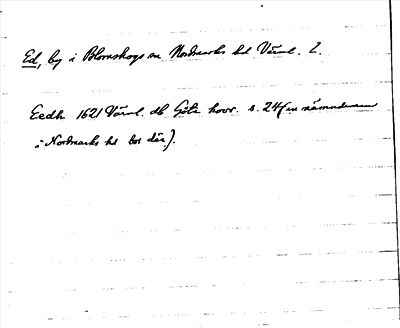 Ed, by i Blomskogs sn Nordmarks hd Värml. l.
Eedh 1621 Värml. db Göta hovr. s. 24 (en nämndeman
i Nordmarks hd bor där).